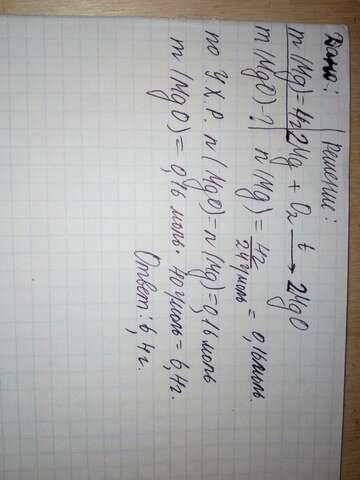 Дано: Решение:
m(Mg)=4г 2Mg + O₂ t→ 2MgO
m(MgO)-? n(Mg) = 4г/24г/моль = 0,16моль.
по У.Х.Р. n(MgO)=n(Mg)=0,16 моль
m(MgO) = 0,16 моль · 40г/моль = 6,4г.
Ответ: 6,4г.